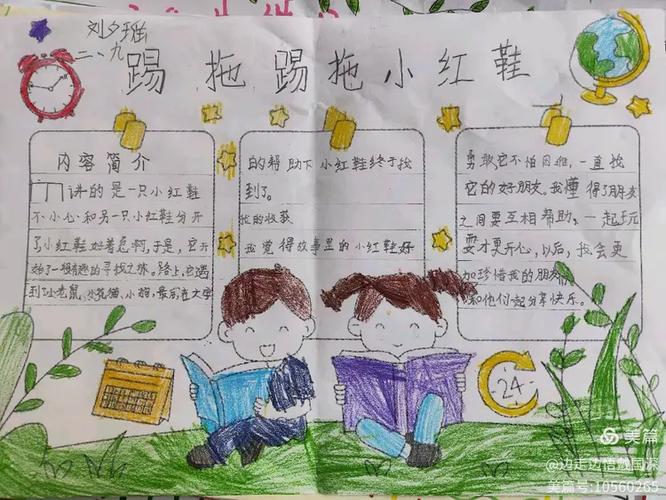 刘夕瑶
二、九
踢拖踢拖小红鞋
内容简介
讲的是一只小红鞋
不小心和另一只小红鞋分开
了小红鞋好着急啊,于是,它开
始了一趟有趣的寻找之旅。路上,它遇
到了小老鼠、小花猫、小狗,最后在大
的帮助下小红鞋终于找
到了。
我的收获
我觉得故事里的小红鞋好
勇敢它不怕困难,一直找
它的好朋友。我懂得了朋友
之间要互相帮助,一起玩
耍才更开心,以后,我会更
加珍惜我的朋友
和他们一起分享快乐。
24
美篇
@边走边悟
美篇号:10560265